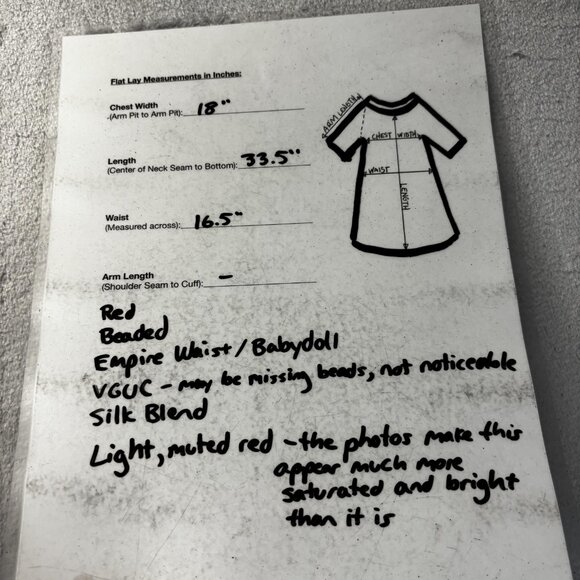 Flat Lay Measurements in Inches:
Chest Width
(Arm Pit to Arm Pit): 18"
Length
(Center of Neck Seam to Bottom): 33.5"
Waist
(Measured across): 16.5"
Arm Length
(Shoulder Seam to Cuff): -
ARM LENGTH
CHEST WIDTH
WAIST
LENGTH
Red
Beaded
Empire Waist/Babydoll
VGUC - may be missing beads, not noticeable
Silk Blend
Light, muted red - the photos make this
appear much more
saturated and bright
than it is